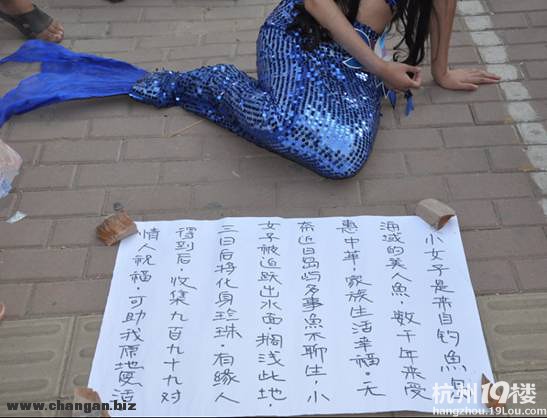 小女子是来自钓鱼岛
海域的美人鱼,数千年来受
惠中华,家族生活幸福,无
奈近日岛屿多事鱼不聊生,小
女子被迫跃出水面搁浅此地,
三日后将化身珍珠,有缘人
得到后,收集九百九十九对
情人祝福,可助我原地复活
www.changan.biz
杭州19楼
hangzhou.19lou.com